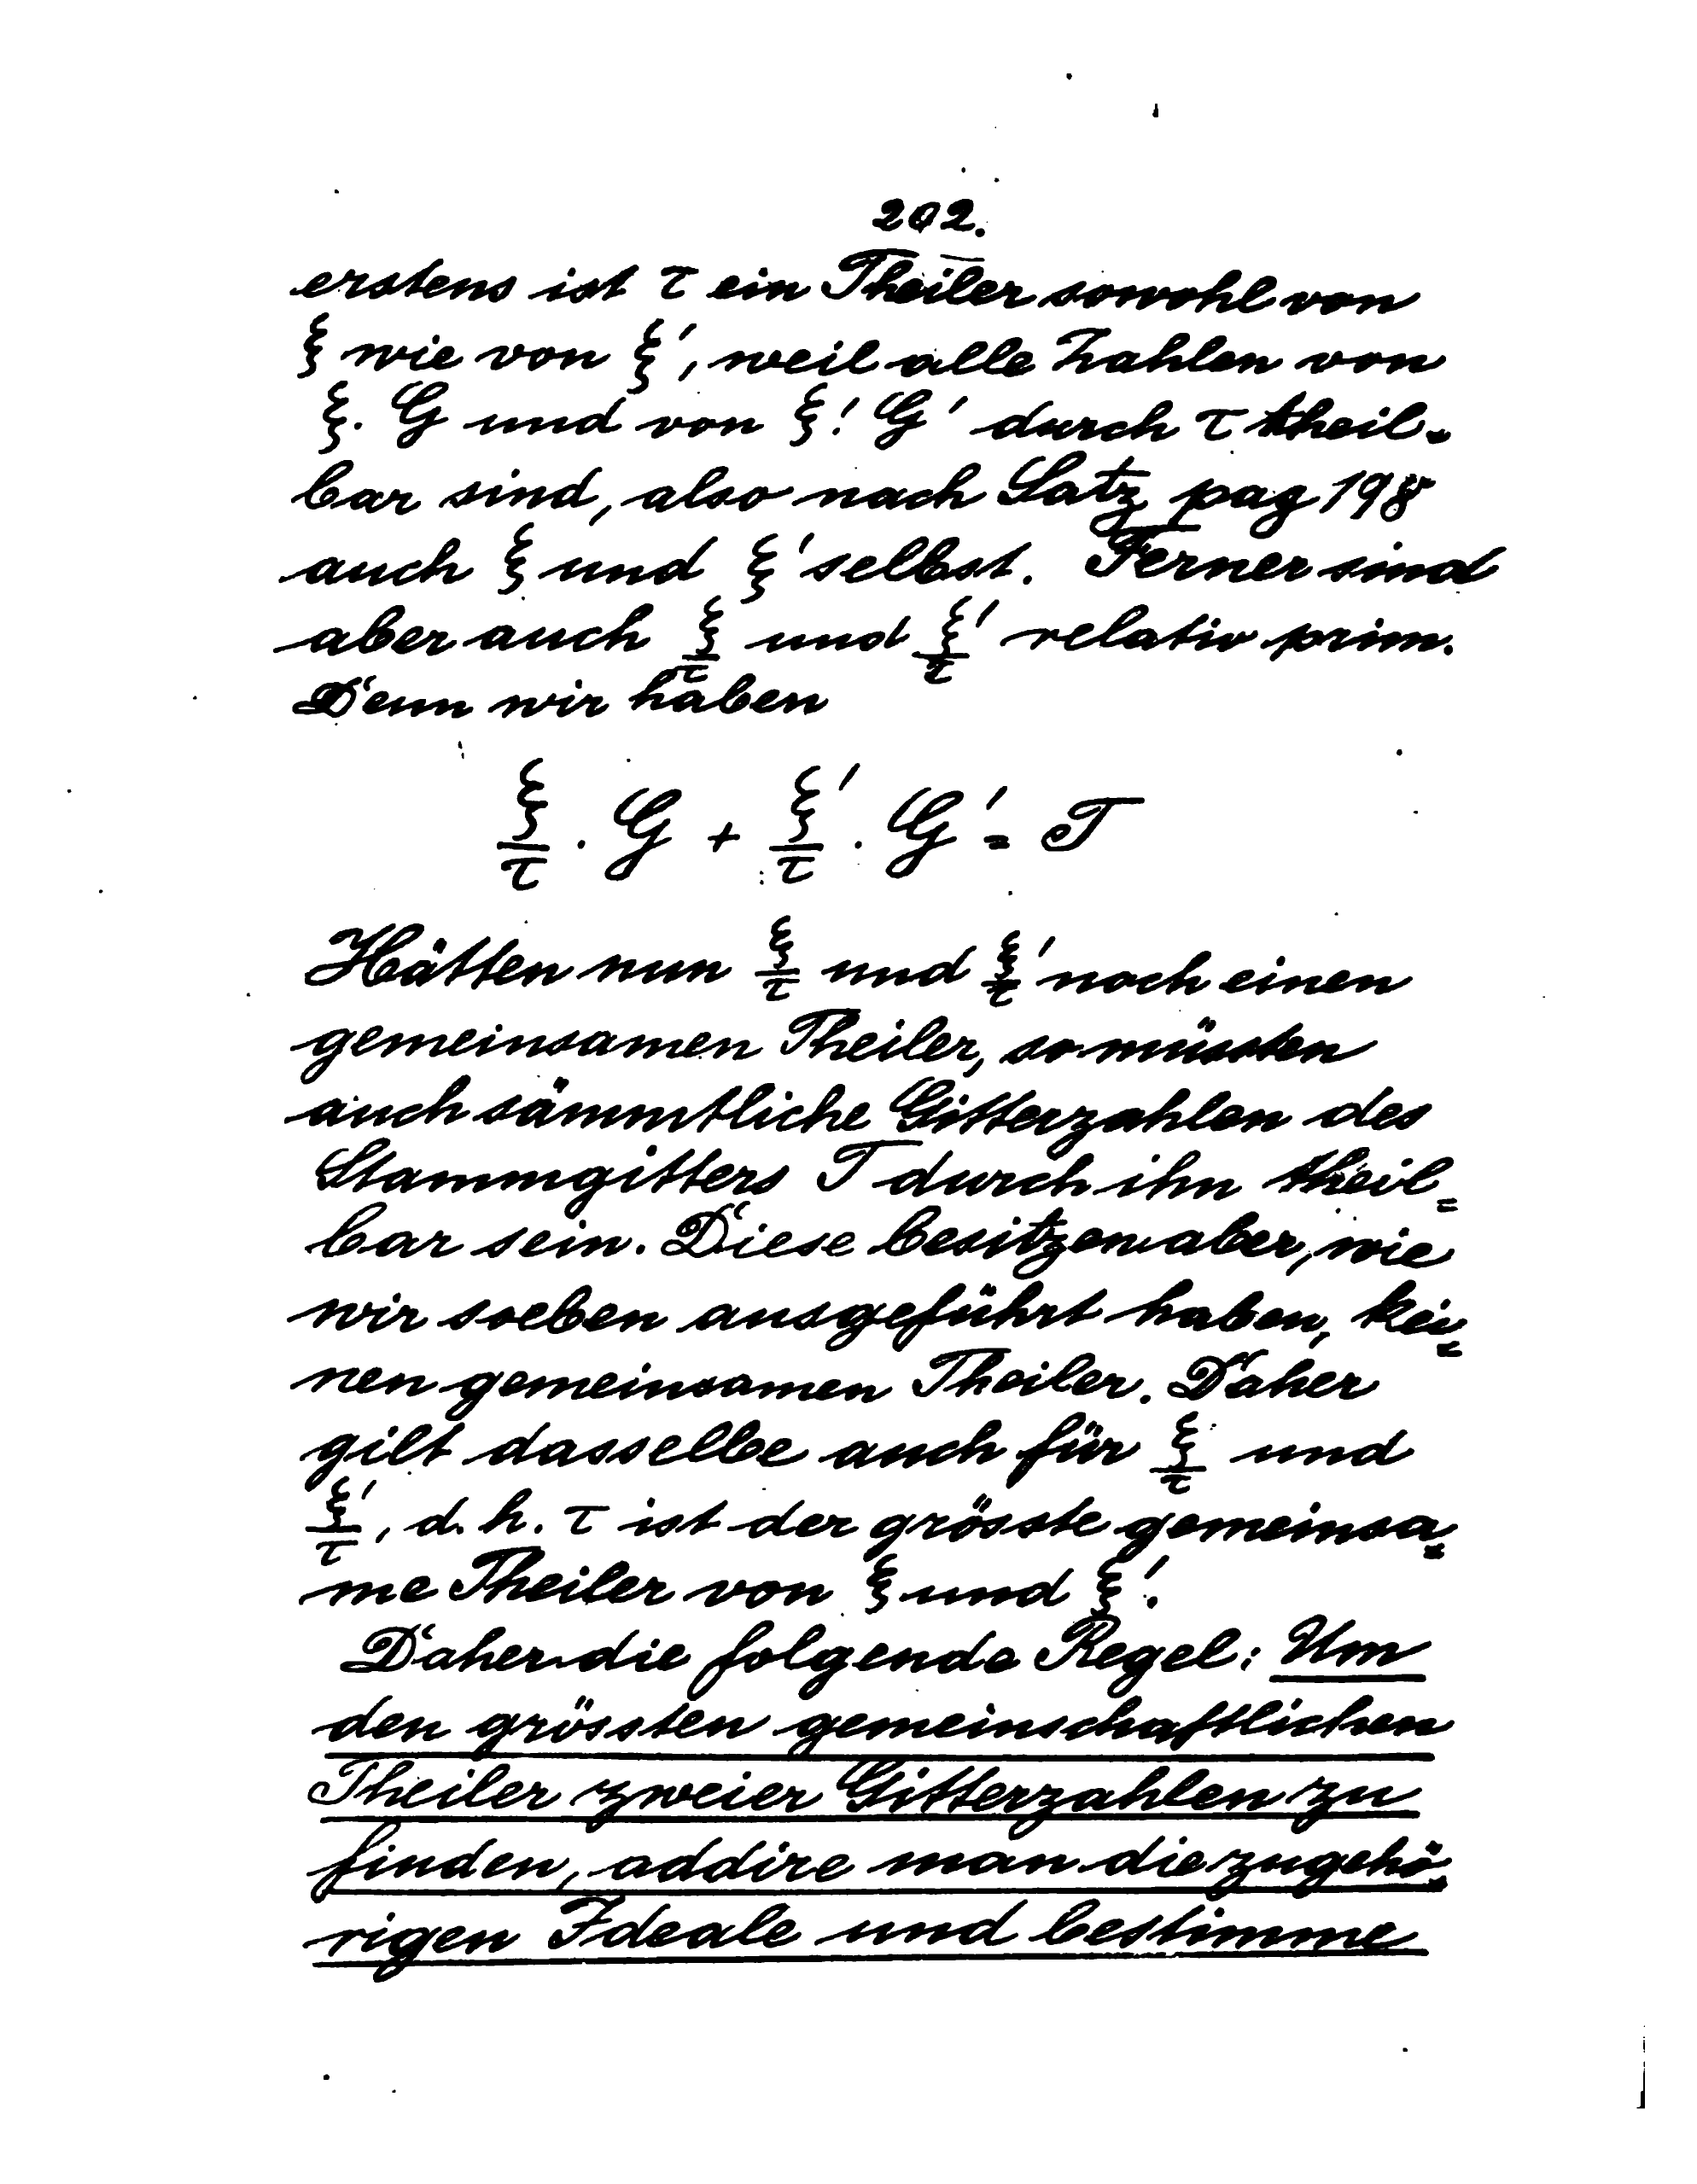 202.
erstens ist τ ein Theiler sowohl von
ξ wie von ξ', weil alle Zahlen von
ξ. G und von ξ'. G' durch τ theil=
bar sind, also nach Satz pag 198
auch ξ und ξ' selbst. Ferner sind
aber auch ξ/τ und ξ'/τ relativ prim.
Denn wir haben
ξ/τ . G + ξ'/τ . G' = T
Hätten nun ξ/τ und ξ'/τ noch einen
gemeinsamen Theiler, so müssten
auch sämmtliche Gitterzahlen des
Stammgitters T durch ihn theil=
bar sein. Diese besitzen aber, wie
wir soeben ausgeführt haben, kei=
nen gemeinsamen Theiler. Daher
gilt dasselbe auch für ξ/τ und
ξ'/τ, d. h. τ ist der grösste gemeinsa=
me Theiler von ξ und ξ'.
Daher die folgende Regel: Um
den grössten gemeinschaftlichen
Theiler zweier Gitterzahlen zu
finden, addire man die zugehö=
rigen Ideale und bestimme